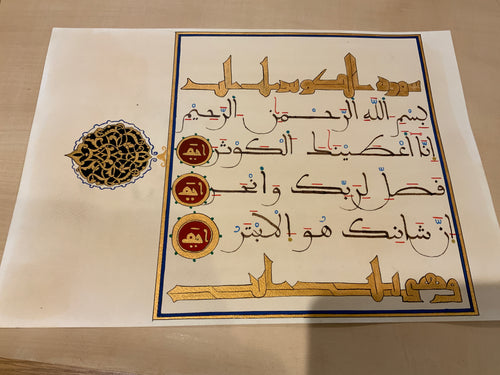 سورة الكوثر
بِسْمِ اللَّهِ الرَّحْمَٰنِ الرَّحِيمِ
إِنَّا أَعْطَيْنَٰكَ الْكَوْثَرَ
فَصَلِّ لِرَبِّكَ وَانْحَرْ
إِنَّ شَانِئَكَ هُوَ الْأَبْتَرُ